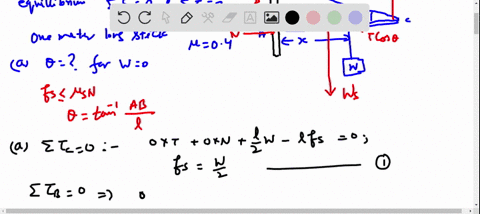 equilibrium
One meter long stick
μ = 0.4
N
x
Tcosθ
c
W
Ws
(a) θ = ? for W = 0
fs ≤ μsN
θ = tan⁻¹ AB/l
(a) Στc = 0 :- 0×T + 0×N + l/2 W - l fs = 0;
fs = W/2 ——— ①
ΣτB = 0 => 0